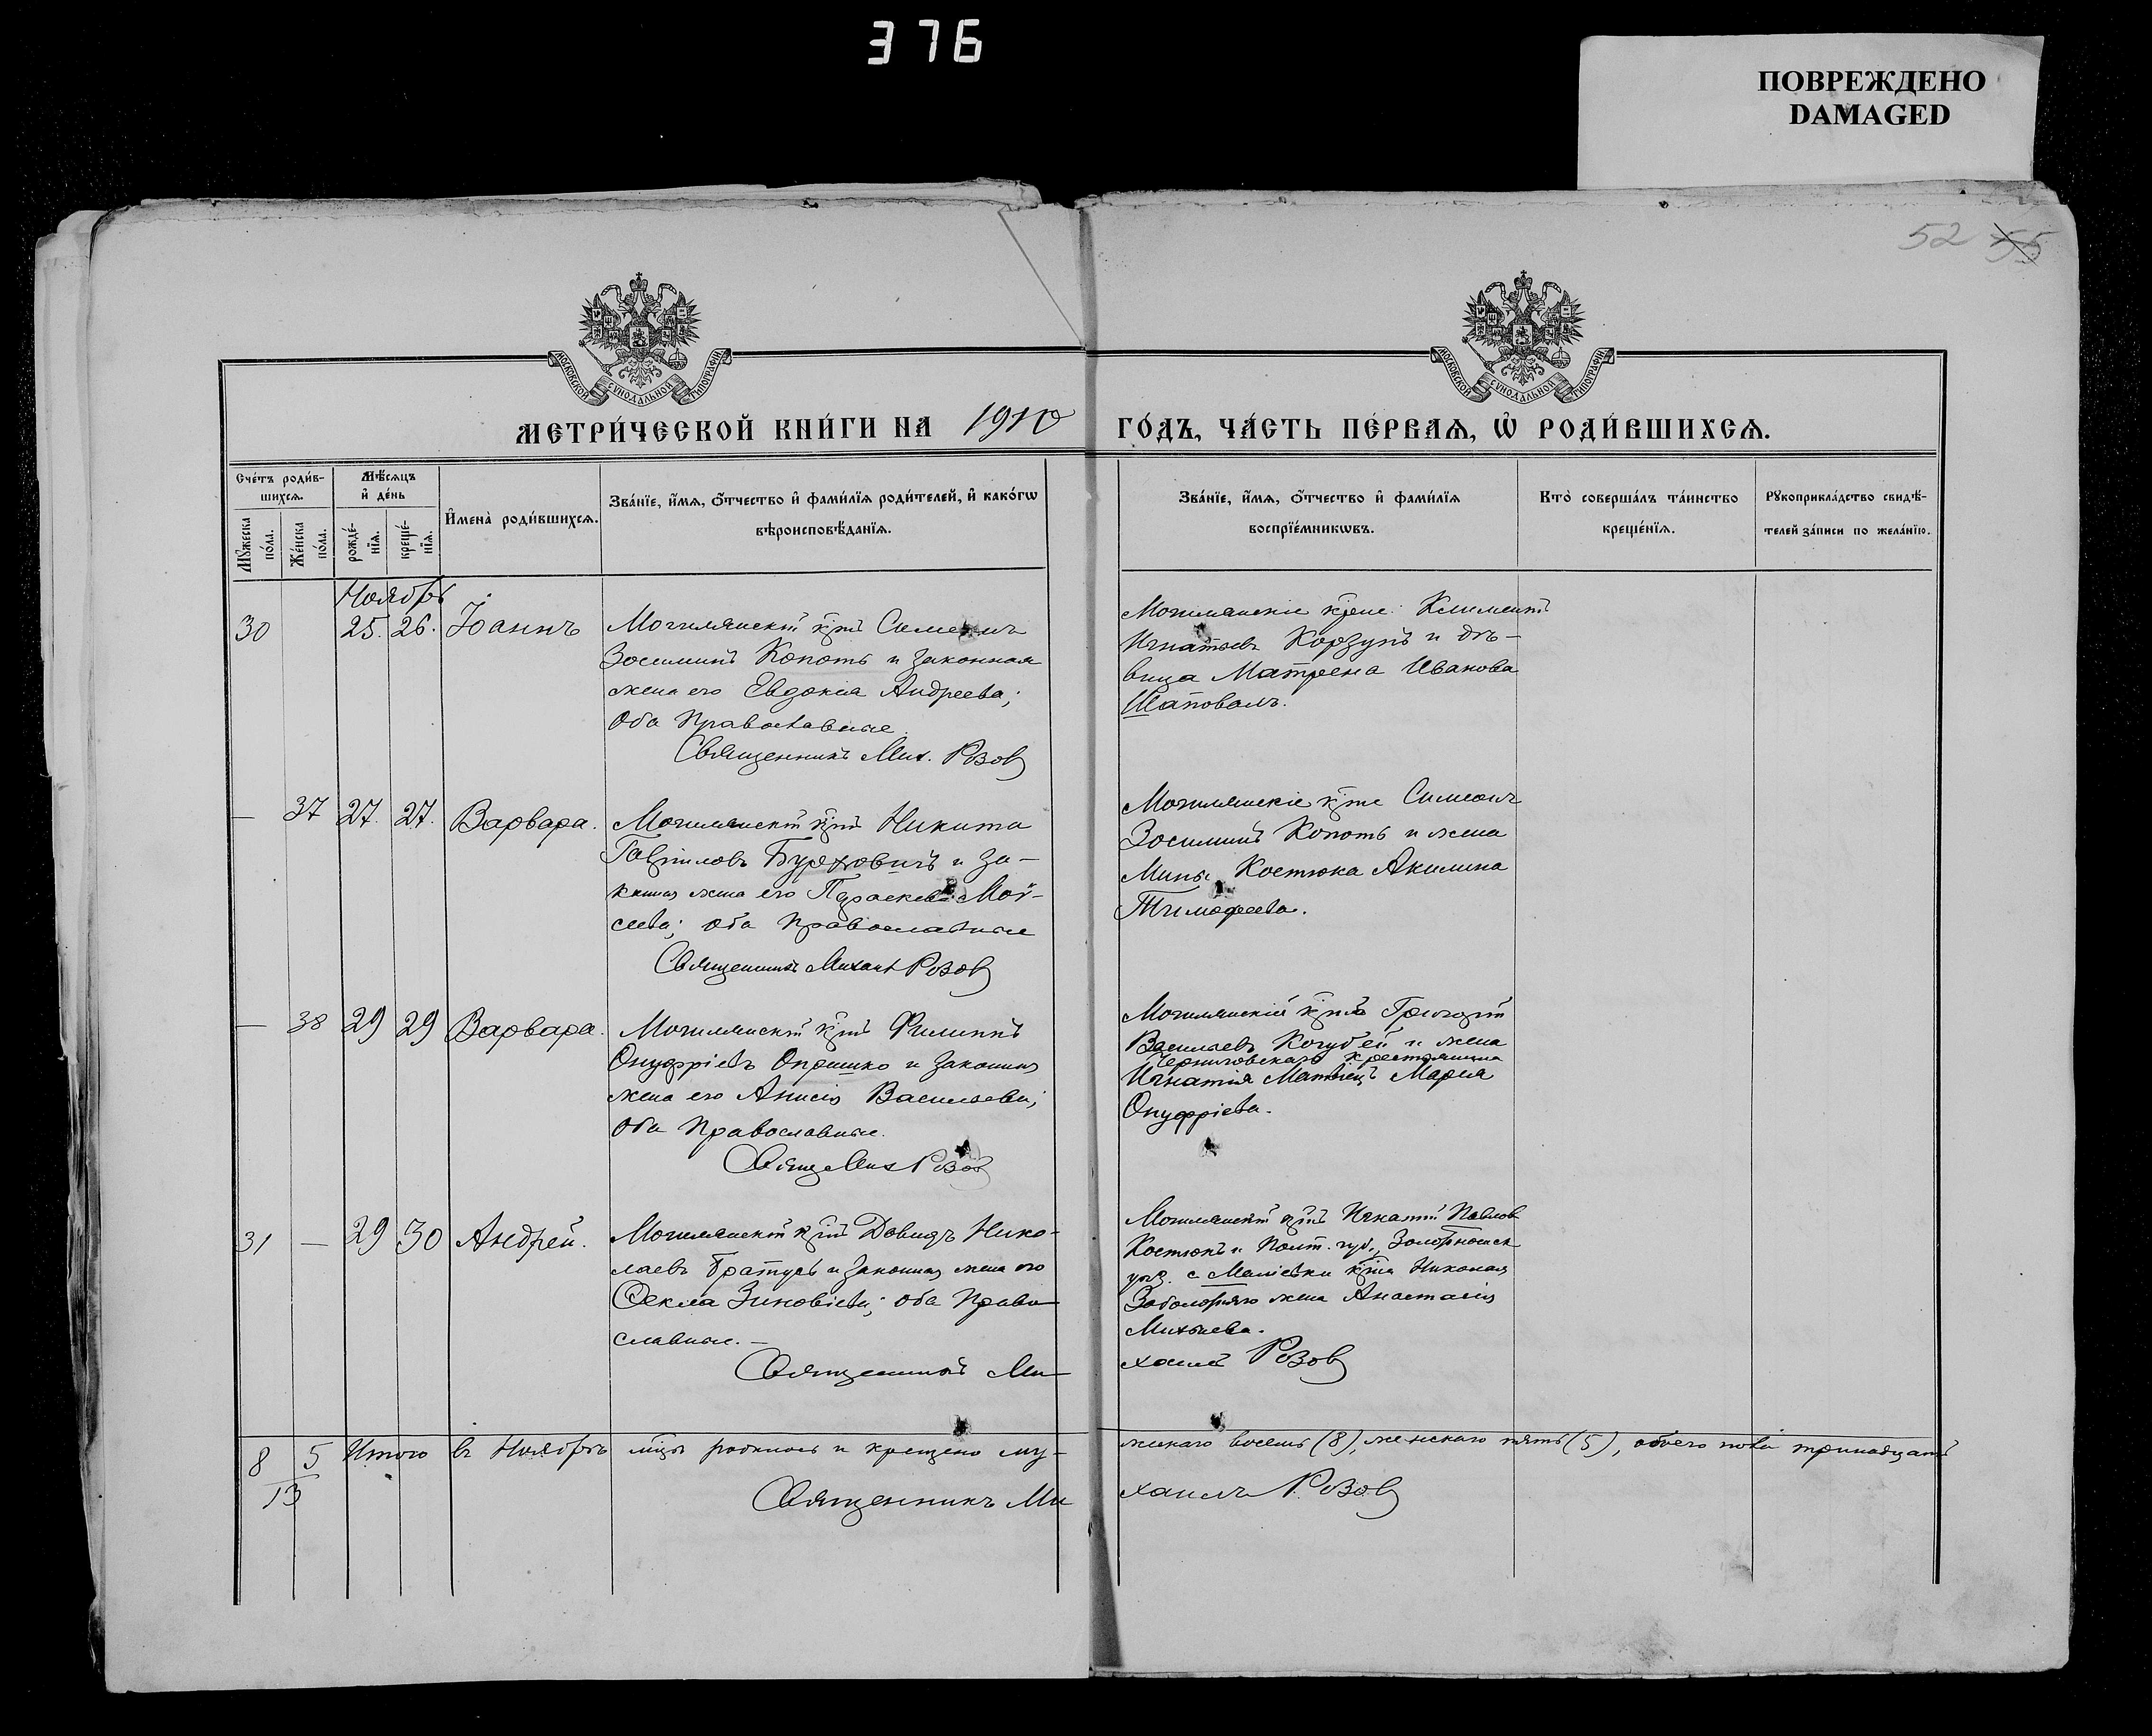 376
ПОВРЕЖДЕНО
DAMAGED
52 55
МОСКОВСКОЙ СѴНОДАЛЬНОЙ ТИПОГРАФІИ
МОСКОВСКОЙ СѴНОДАЛЬНОЙ ТИПОГРАФІИ
МЕТРИ́ЧЕСКОЙ КНИ́ГИ НА 1910 ГО́ДЪ, ЧА́СТЬ ПЕ́РВАѦ, Ѡ҆ РОДИ́ВШИХСѦ.
Сче́тъ роди́в-
шихсѧ.
Мꙋ́жеска по́ла.
Же́нска по́ла.
Мѣ́сѧцъ
и҆ де́нь
рожде́-
нїѧ.
креще́-
нїѧ.
И҆мена̀ роди́вшихсѧ.
Зва́нїе, и҆́мѧ, ѻ҆́тчество и҆ фами́лїѧ роди́телей, и҆ како́гѡ
вѣроисповѣ́данїѧ.
Зва́нїе, и҆́мѧ, ѻ҆́тчество и҆ фами́лїѧ
воспрїе́мникѡвъ.
Кто̀ соверша́лъ та́инство
креще́нїѧ.
Рꙋкоприкла́дство свидѣ́-
телей за́писи по жела́нїю.
Ноябрь
30 25. 26. Іоаннъ
Могилянскій кр͠тъ Симеонъ
Зосиминъ Копоть и законная
жена его Евдокія Андреева;
оба православные
Священникъ Мих. Розов
Могилянскіе кр͠не: Климентъ
Игнатьевъ Корзунъ и дѣ-
вица Матрена Иванова
Шаповалъ.
— 37 27. 27. Варвара.
Могилянскій кр͠нъ Никита
Гавріиловъ и за-
жена его Параскева Мой-
сеева; оба православные
Священникъ Михаил Розов
Могилянскіе кр͠не Симеонъ
Зосиминъ Копоть и жена
Мины Костюка Акилина
Тимофеева.
— 38 29 29 Варвара.
Могилянскій кр͠нъ Филиппъ
Онуфріевъ Опришко и законная
жена его Анисія Васильева;
оба православные.
Свящ. Мих Розов
Могилянскій кр͠нъ Григорій
Васильевъ Кочубей и жена
Черниговскаго крестьянина
Игнатія Матвіецъ Марія
Онуфріева.
31 — 29 30 Андрей.
Могилянскій кр͠нъ Давидъ Нико-
лаевъ Братусь и законная жена его
Ѳекла Зиновіева; оба право
славные. —
Священникъ Ми-
Могилянскій кр͠нъ Игнатій Павлов
Костюкъ и Полт. губ., Золотоношск
уѣз. с кр͠на Николая
жена Анастасія
Михѣева.
хаилъ Розов
8 5 Итого въ Ноябрѣ мѣ͠цѣ родилось и крещено му-
жскаго восемь (8), женскаго пять (5), обоего пола тринадцать
13
Священникъ Ми
хаилъ Розов